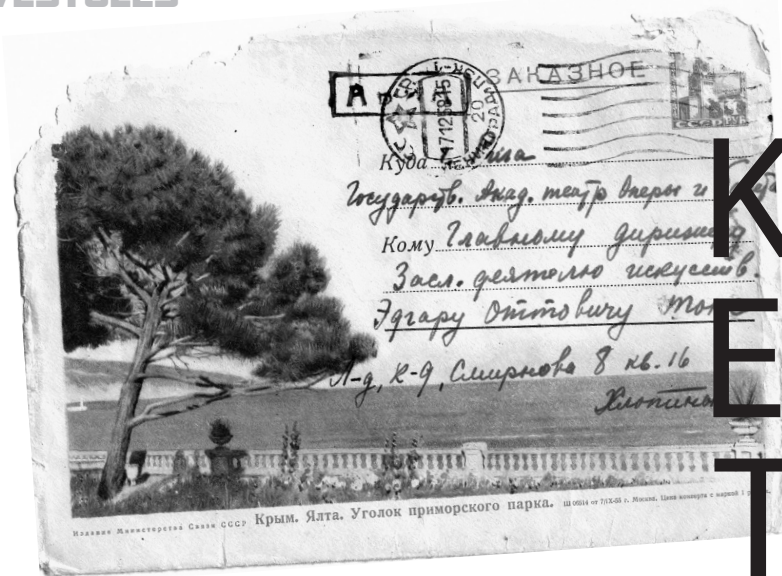 VESTULES
ЗАКАЗНОЕ
А
ЛЕНИНГРАД
17125815
20
СССР
Куда
Государств. Акад. театр Оперы и
Кому Главному дирижеру
Засл. деятелю искусств.
Эдгару Оттовичу
Л-д, К-9, Смирнова 8 кв. 16
Издание Министерства Связи СССР Крым. Ялта. Уголок приморского парка. Ш 06514 от 7/IX-55 г. Москва. Цена конверта с маркой 1 р
K
E
T